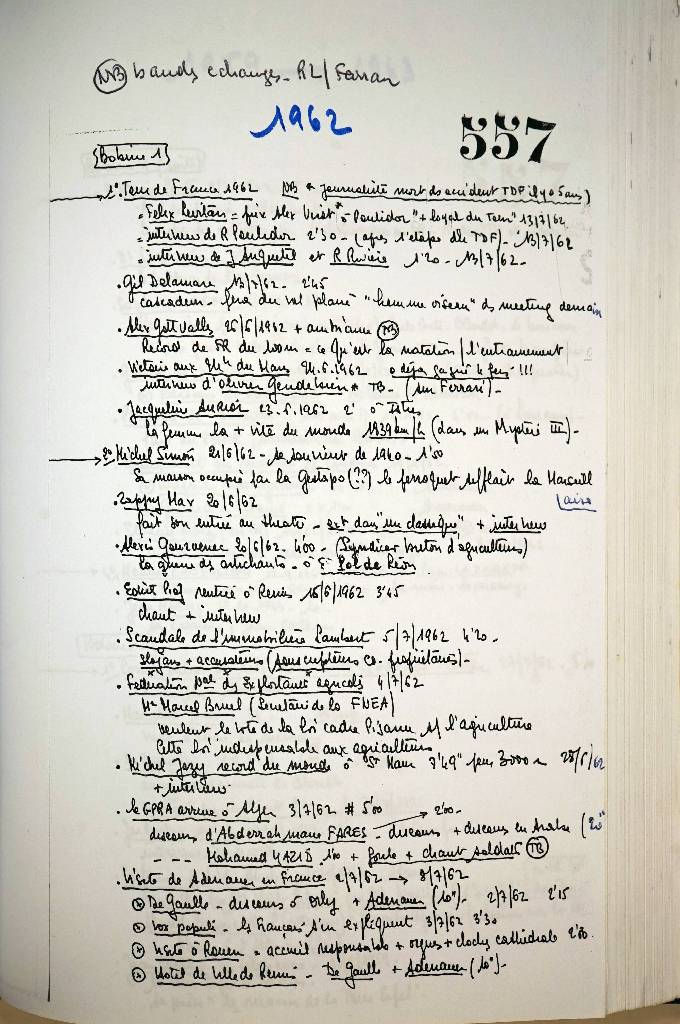 NB bandes echanges - RL / Farran
1962
557
Bobine 1
1° Tour de France 1962 NB * journaliste mort ds accident TDF il y a 5 ans)
= Felix Levitan = prix Alex Virot* à Poulidor "+ loyal du Tour" 13/7/62
= interview de R Poulidor 2'30 - (apres l'etape du TDF) - 13/7/62
= interview de J Anquetil et R Riviere 1'20 - 13/7/62 -
. Gil Delamare 13/7/62 - 2'45
cascadeur - fera du vol plané "homme oiseau" ds meeting demain
. Alex Gottvalles 26/6/1962 + ambiance NB
Record de FR du 100m = ce qu'est la natation / l'entrainement
. Victoire aux 24h du Mans 24.6.1962 a déja gagné le !!!
interview d'Olivier Gendebien * TB - (sur Ferrari) -
. Jacqueline Auriol 23.6.1962 2' à Istres
la femme la + vite du monde 1939 km/h (dans un Mystère III) -
2° Michel Simon 21/6/62 - se souvient de 1940 - 1'50
Sa maison occupée par la Gestapo (??) le perroquet sifflait la Marseill
aise
. Zappy Max 20/6/62
fait son entrée au theatre - ext dans "un classique" + interview
. Alexis Gourvenec 20/6/62 - 4'00 - (Syndicat breton d'agriculteurs)
la guerre des artichauts - à St Pol de Léon
. Edith Piaf rentrée à Reims 16/6/1962 3'45
chant + interview
. Scandale de l'immobilière Lambert 5/7/1962 4'20 -
slogans + accusations (souscripteurs co-propriétaires) -
. Fédération nale des Exploitants agricols 4/7/62
Mr Marcel Bruel (Secretaire de la FNEA)
veulent le vote de la loi cadre Pisani s/ l'agriculture
Cette loi indispensable aux agriculteurs
. Michel Jazy record du monde à St Maur 7'49" pour 3000 m 28/6/62
+ interview
. le GPRA arrive à Alger 3/7/62 # 5'00
discours d'Abderrahmane FARES - discours + discours en Arabe (20"
2'00 -
- - - Mohamed YAZID 1'00 + foule + chant soldats TB
. Visite de Adenauer en France 2/7/62 → 8/7/62
De Gaulle - discours à Orly + Adenauer (10") - 2/7/62 2'15
Vox populi - les Français s'en expliquent 3/7/62 3'30
Visite à Rouen = accueil responsable + orgues + cloches cathédrale 2'00.
Hotel de Ville de Reims - De Gaulle + Adenauer (10") -